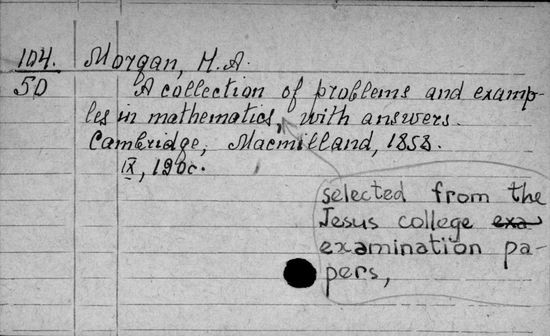 104. Morgan, H.A.
50 A collection of problems and examp-
les in mathematics, with answers.
Cambridge, Macmilland, 1858.
IX, 190c.
selected from the
Jesus college exa
examination pa-
pers,